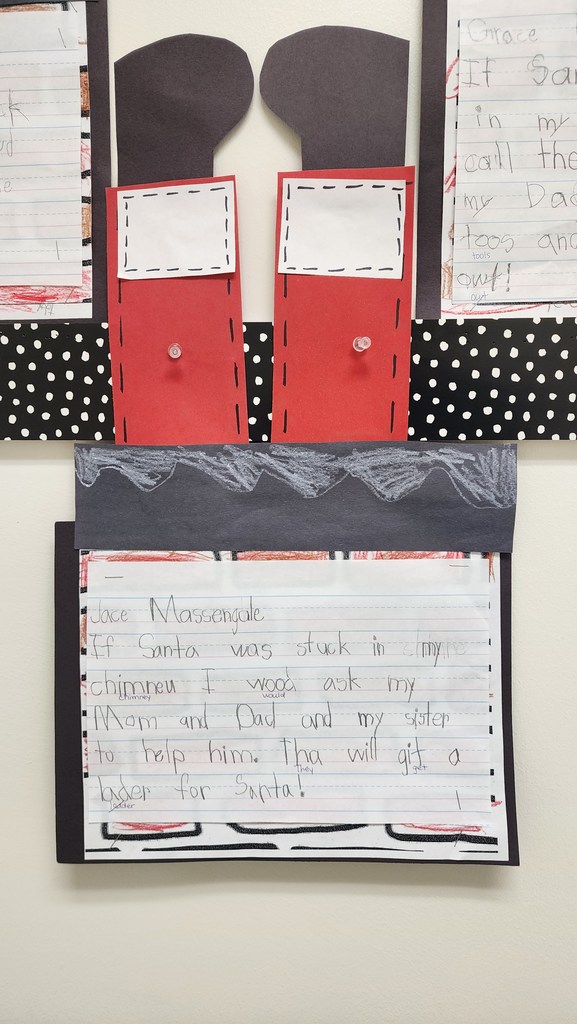 Jace Massengale
If Santa was stuck in my
chimneu I wood ask my
chimney would
Mom and Dad and my sister
to help him. Tha will git a
they get
lader for Santa!
ladder
Grace
If San
in my
call the
my Dad
toos and
tools
owt!
out